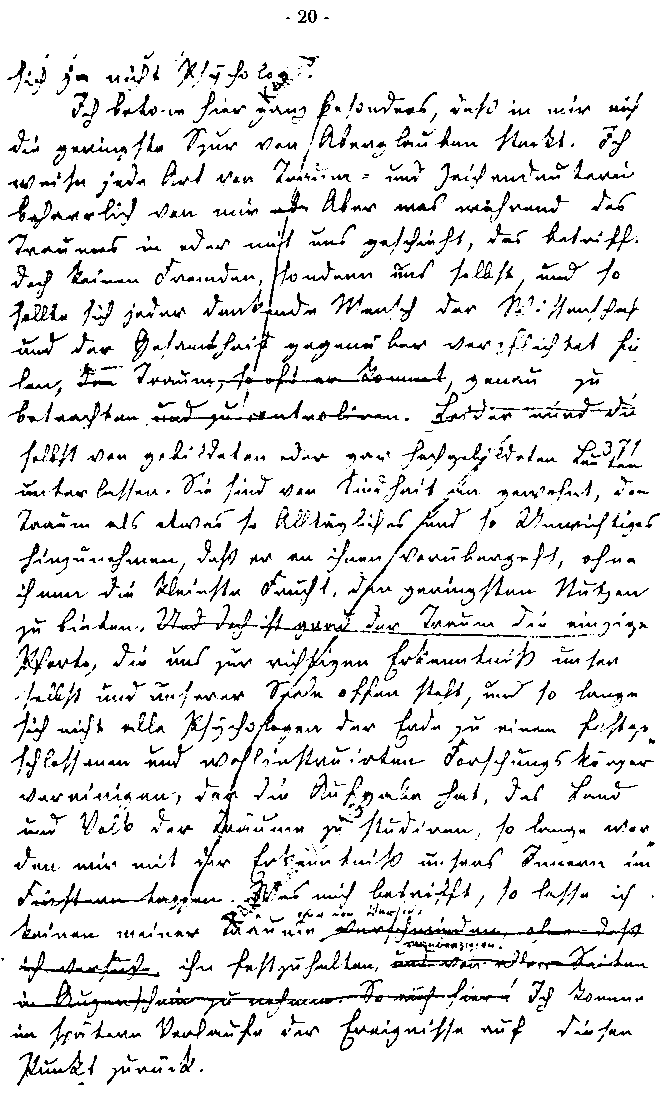 - 20 -
sich ja nicht Psycholog?
Ich betone hier ganz besonders, daß in mir nicht
die geringste Spur von Aberglauben steckt. Ich
weise jede Art von Traum- und Zeichendeuterei
beharrlich von mir ab. Aber was während des
Traumes in oder mit uns geschieht, das betrifft
doch keinen Fremden, sondern uns selbst, und so
sollte sich jeder denkende Mensch der Wissenschaft
und der Gesamtheit gegenüber verpflichtet füh-
len, den Traum, so oft er kommt, genau zu
betrachten und zu controliren. Leider wird die
371
selbst von gebildeten oder gar hochgebildeten Leuten
unterlassen. Sie sind von Kindheit an gewohnt, den
Traum als etwas so Alltägliches und so Unwichtiges
hinzunehmen, daß er an ihnen vorübergeht, ohne
ihnen die kleinste Frucht, den geringsten Nutzen
zu bieten. Und doch ist grad der Traum die einzige
Pforte, die uns zur richtigen Erkenntniß unser
selbst und unserer Seele offen steht, und so lange
sich nicht alle Psychologen der Erde zu einem festge-
schlossenen und wohlinstruirten Forschungskörper
vereinigen, der die Aufgabe hat, das Land
und Volk der Träume zu studiren, so lange wer-
den wir mit der Erkenntniß unsers Innern im
Finstern tappen. Was mich betrifft, so lasse ich
keinen meiner Träume verschwinden, ohne daß
ich versuche, ihn festzuhalten, und von allen Seiten
in Augenschein zu nehmen. So auch hier! Ich komme
im spätern Verlaufe der Ereignisse auf diesen
Punkt zurück.